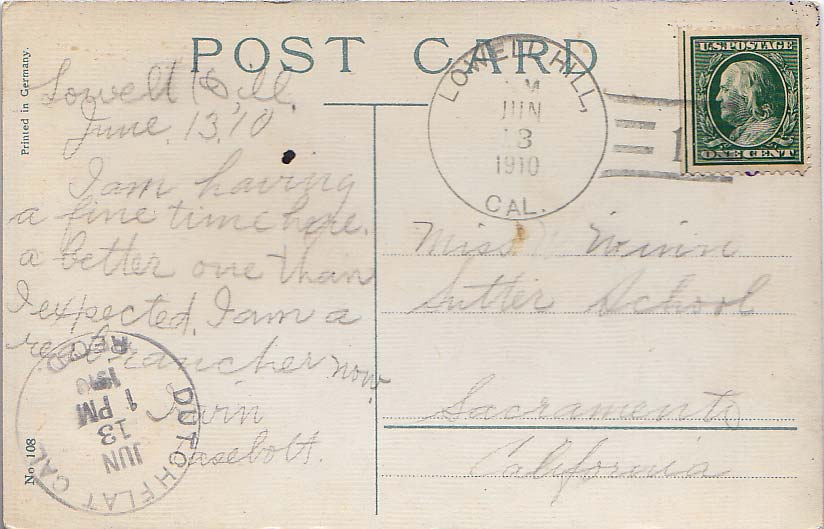 POST CARD
Printed in Germany.
Lowell Hill,
June, 13,'10
I am having
a fine time here.
a better one than
I expected. I am a
real rancher now.
Irwin
No 108
LOWELL HILL,
JUN
13
1910
CAL.
U.S. POSTAGE
ONE CENT
1
Miss Winn
Sutter School
Sacramento
California
DUTCH FLAT CAL.
JUN
13
1 PM
1910
REC'D